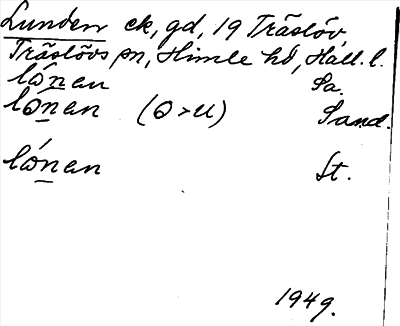 Lunden ek, gd, 19 Träslöv,
Träslövs sn, Himle hd, Hall. l.
lónan Sa.
lonan (o>u) Sand.
lónan St.
1949.